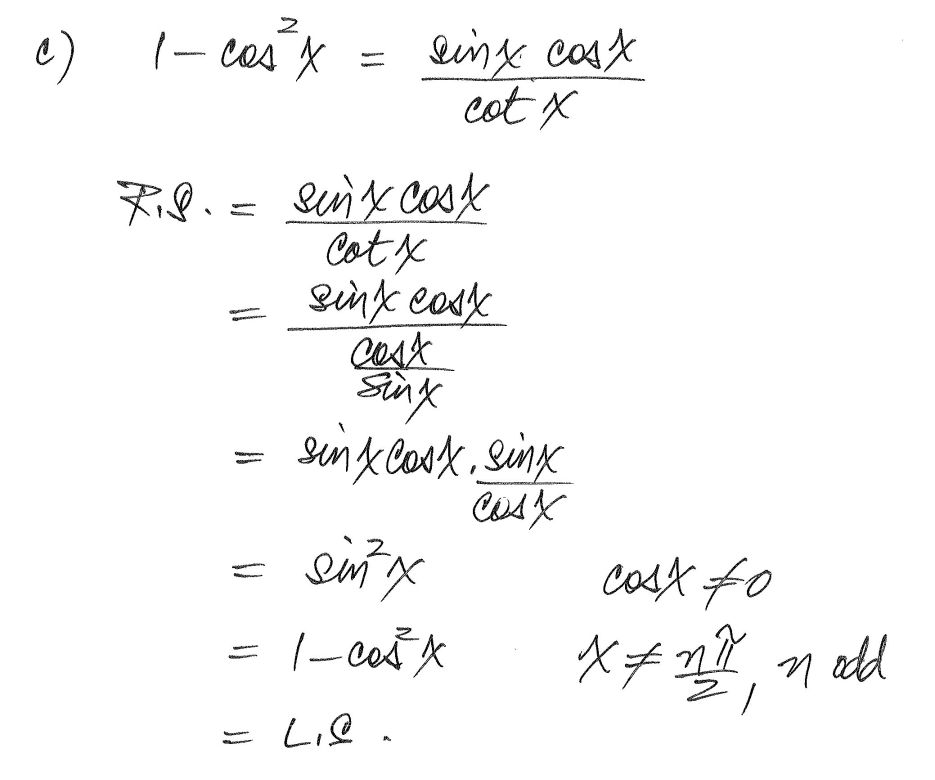 c) 1 - cos²x = sinx cosx / cot x
R.S. = sinx cosx / cot x
= sinx cosx / (cosx / sinx)
= sinx cosx . sinx / cosx
= sin²x cosx ≠ 0
= 1 - cos²x x ≠ nπ/2, n odd
= L.S.